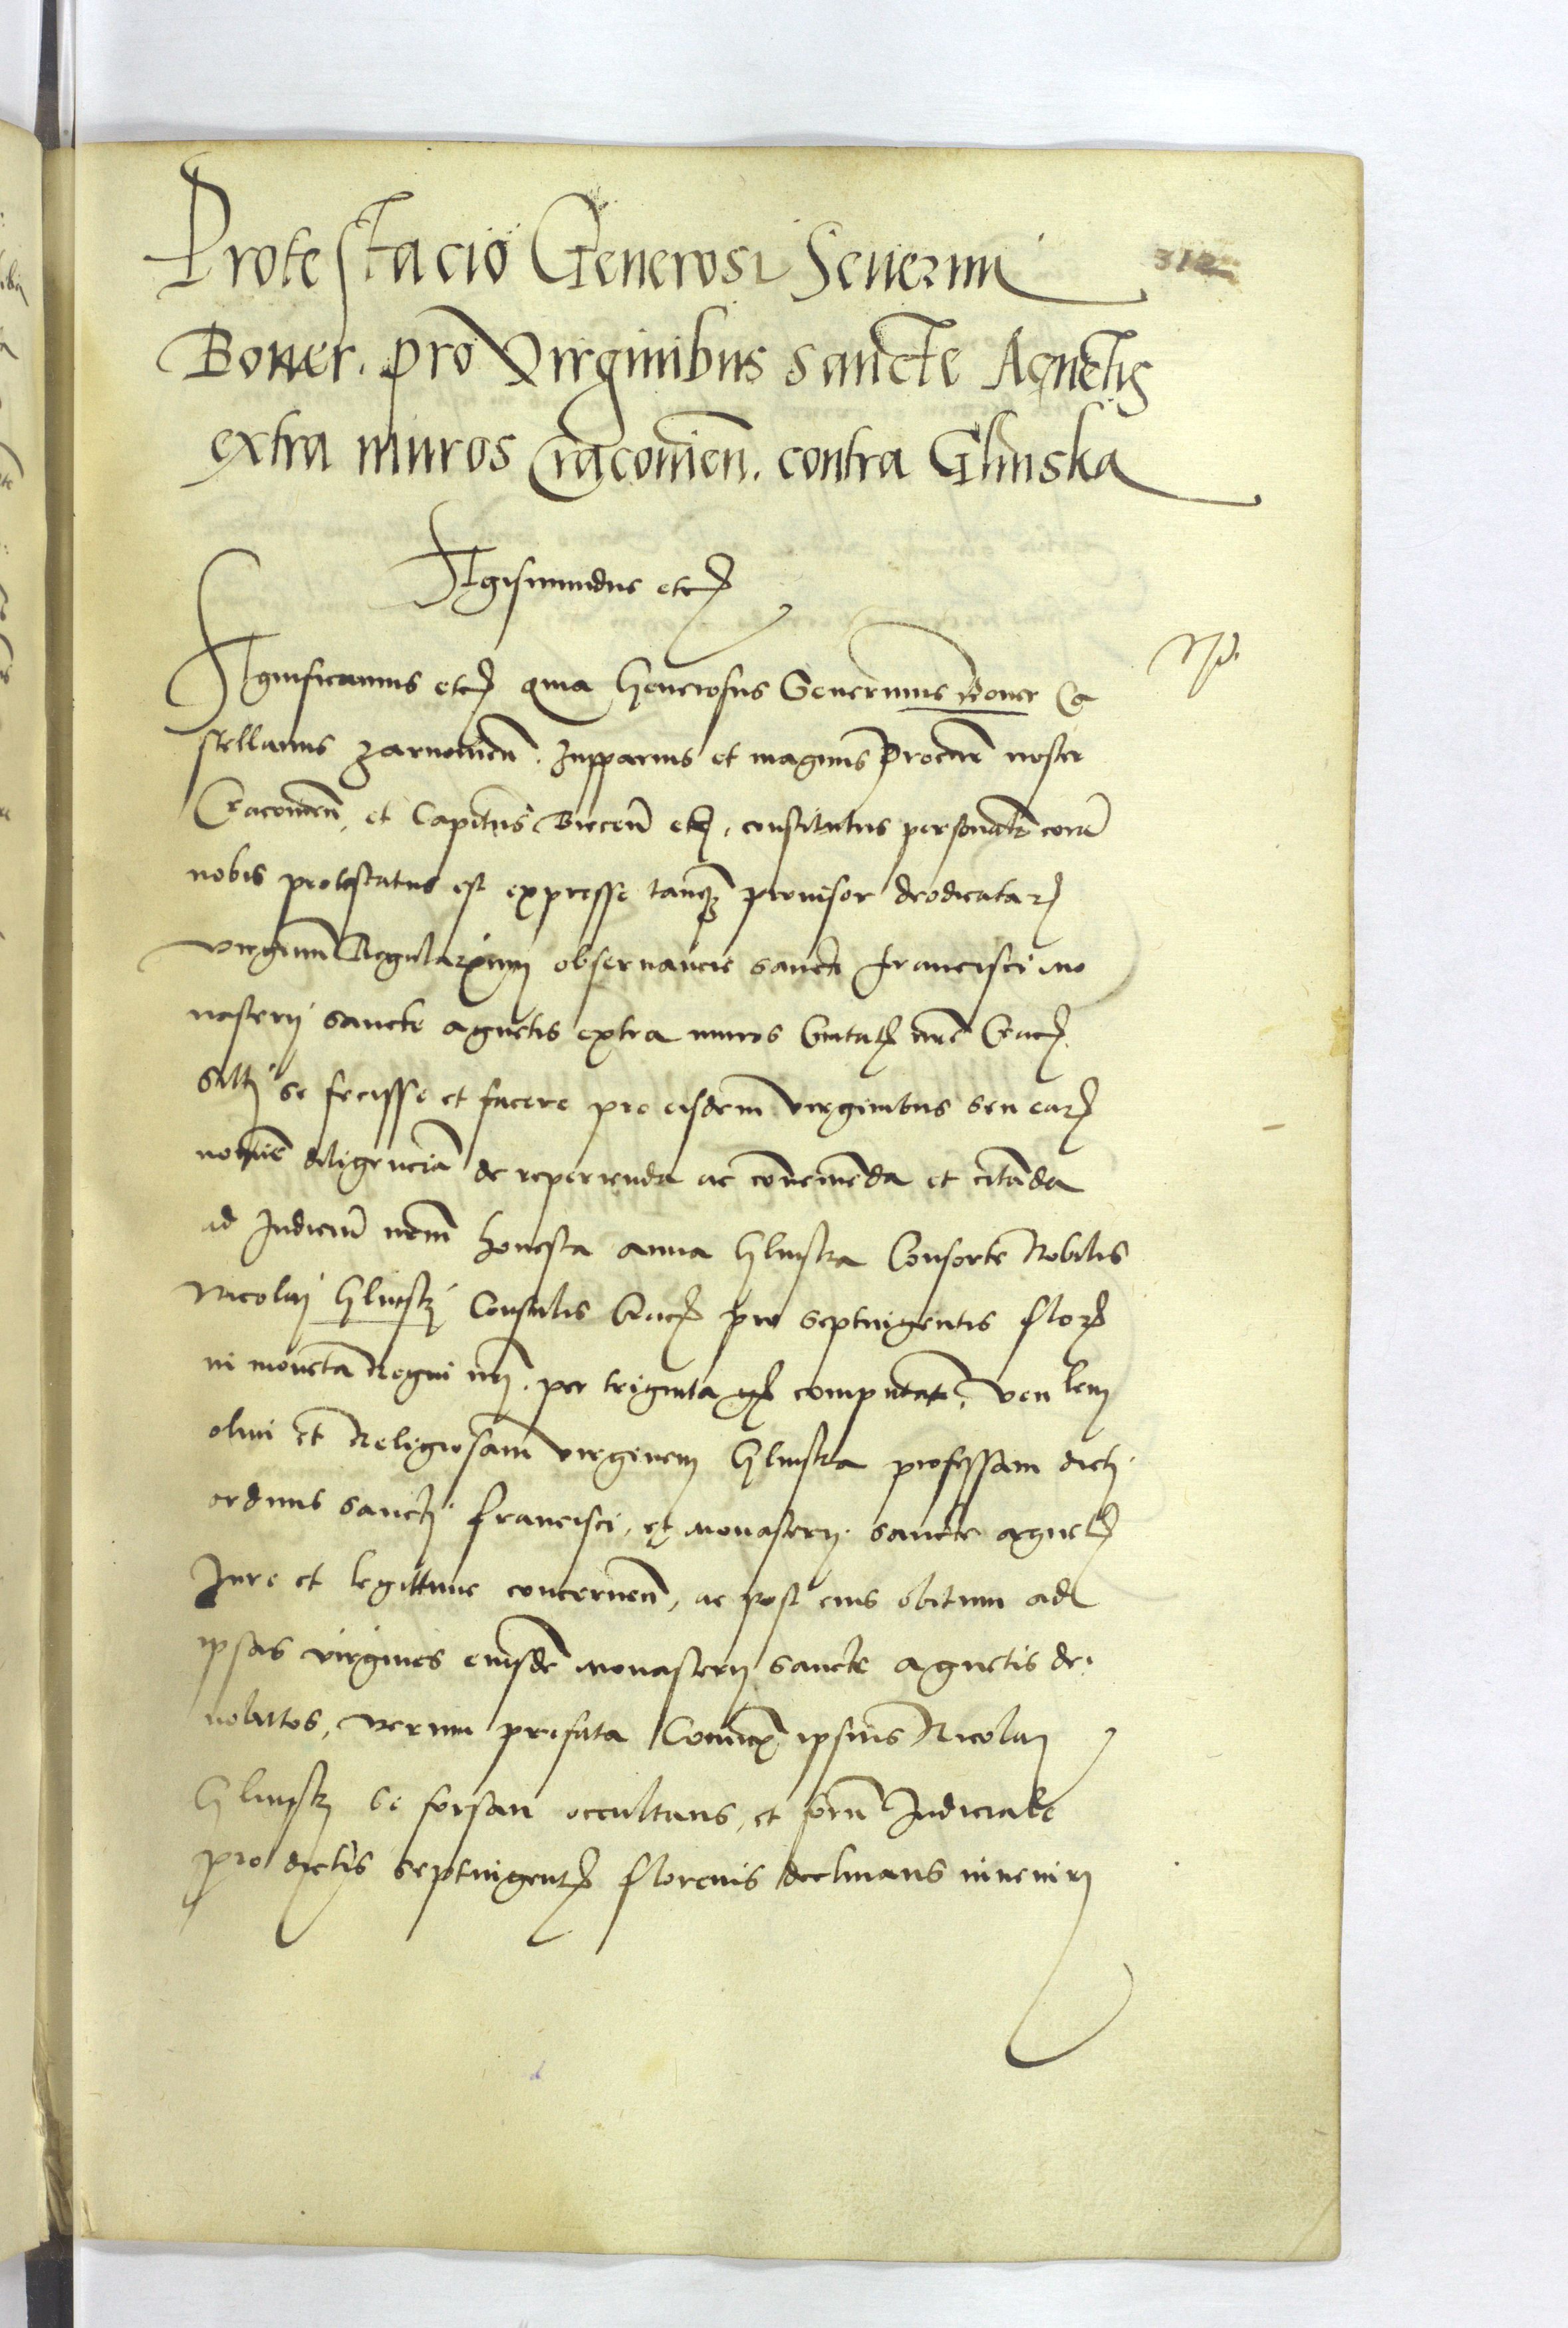 Protestacio Generosi Seuerini
312
Boner. pro Virginibus sancte Agnetis
extra muros Cracouien. contra Glinska
Sigismundus etc
Significamus etc quia Generosus Seuerinus Boner Ca
stellanus Zarnouien. Zupparius et magnus Procur noster
Cracouien. et Capitus Biecen etc, constitutus personalr cora
nobis protestatus est expresse tanq prouisor dedicatar
virginu Regularium obseruancie sancti Francisci mo
nasterij sancte Agnetis extra muros Ciuitat nre Crac
se fecisse et facere pro eisdem virginibus seu ear
noie diligencia de reperienda ac conuenienda et citanda
ad Iudiciu nrm honesta Anna Glinska Consorte Nobilis
Nicolai Glinskj Consulis Crac pro septuigentis flor
in moneta Regni nrj. per triginta gr computat,
olim et Religiosam virginem Glinska professam dicti
ordinis sancti Francisci, et Monasterij sancte Agnet
Iure et legittime concernen, ac post eius obitum ad
ipsas virgines eiusde Monasterij sancte Agnetis de
uolutos, verum prefata Coniux ipsius Nicolai
Glinskj se forsan occultans, et foru Iudiciale
pro dictis septuigent florenis declinans inuenirj